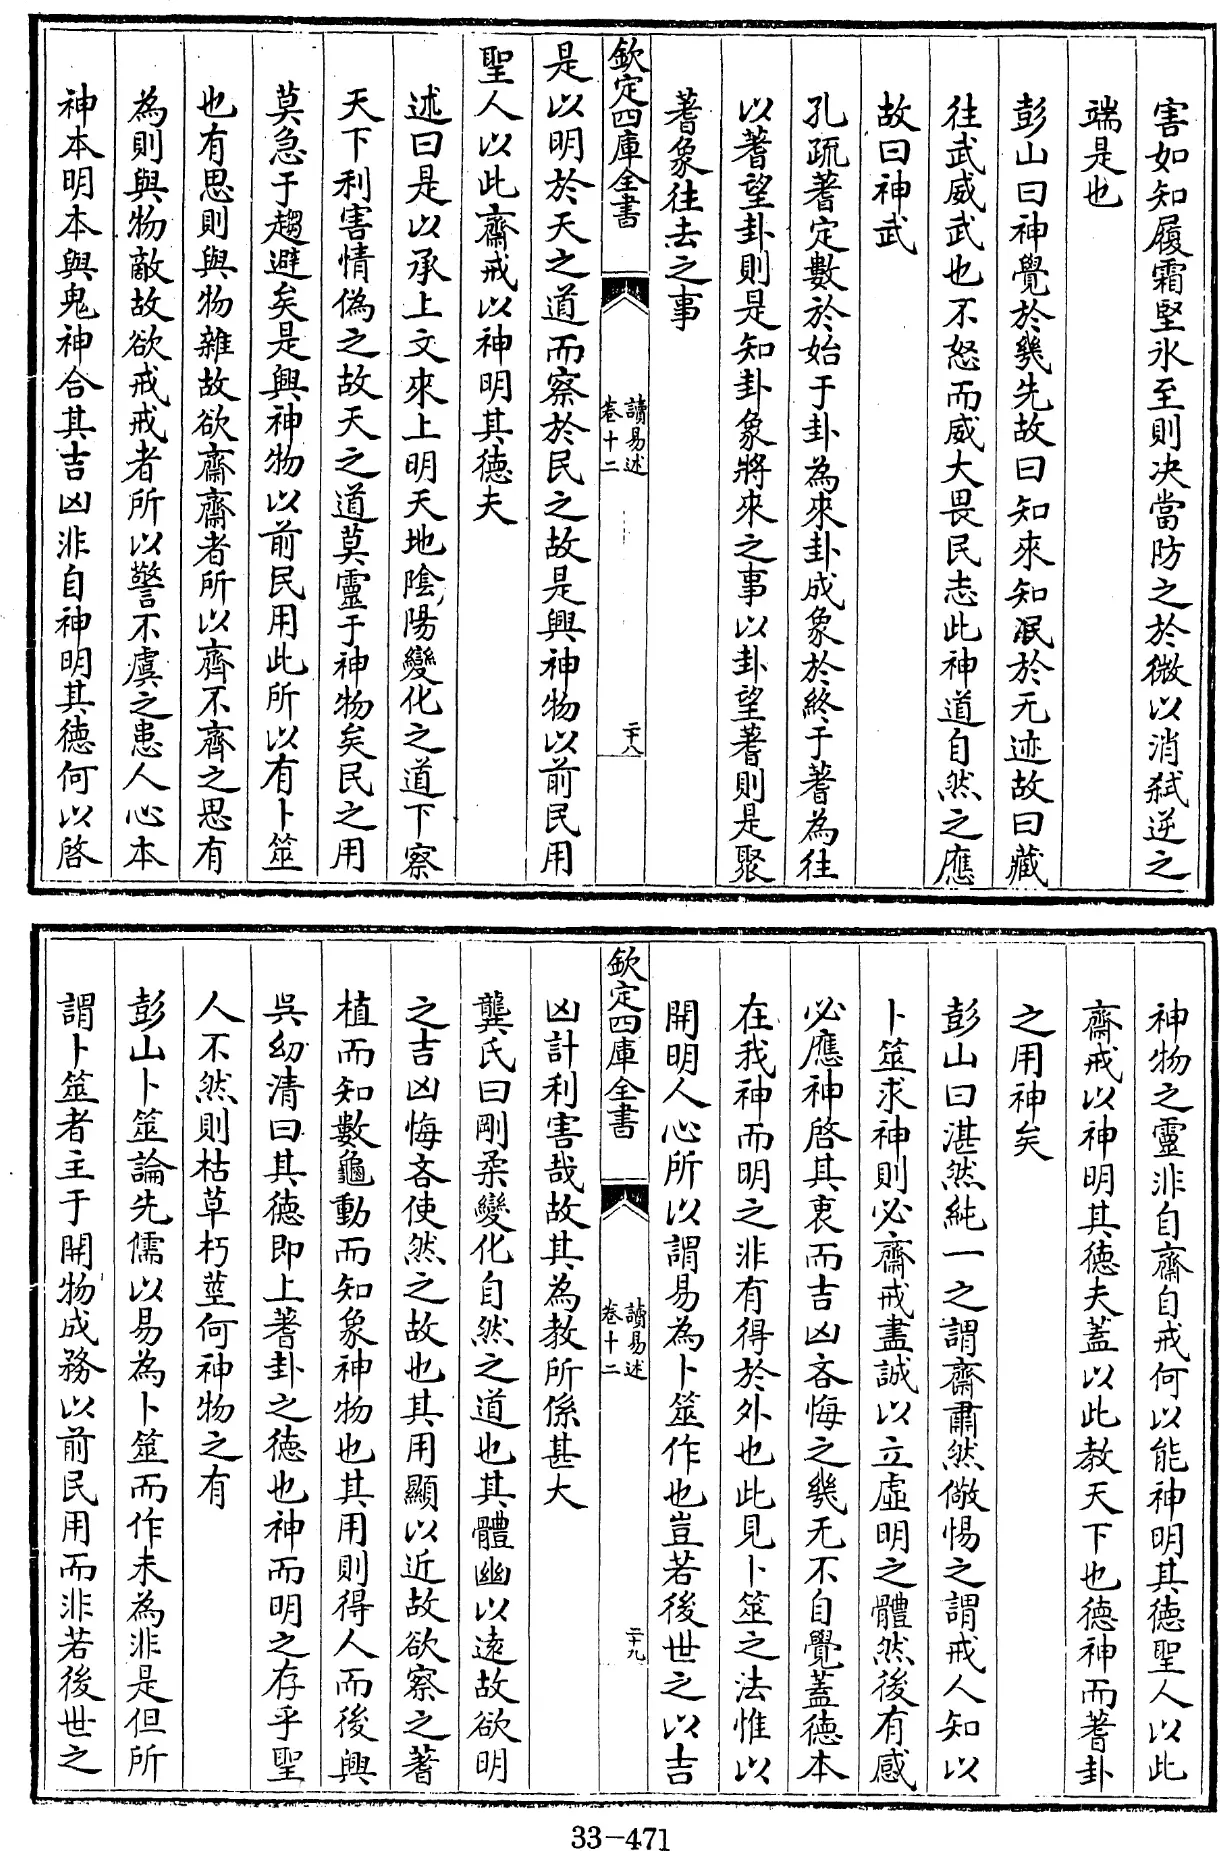 害如知履霜堅氷至則决當防之於微以消弑逆之
端是也
彭山曰神覺於㡬先故曰知來知冺於无迹故曰藏
往武威武也不怒而威大畏民志此神道自然之應
故曰神武
孔疏蓍定數於始于卦為來卦成象於終于蓍為往
以蓍望卦則是知卦象將來之事以卦望蓍則是聚
蓍象往去之事
欽定四庫全書
讀易述
卷十二
二十八
是以明於天之道而察於民之故是興神物以前民用
聖人以此齋戒以神明其德夫
述曰是以承上文來上明天地隂陽變化之道下察
天下利害情偽之故天之道莫靈于神物矣民之用
莫急于趨避矣是興神物以前民用此所以有卜筮
也有思則與物雜故欲齋齋者所以齊不齊之思有
為則與物敵故欲戒戒者所以警不虞之患人心本
神本明本與鬼神合其吉凶非自神明其德何以啓
神物之靈非自齋自戒何以能神明其德聖人以此
齋戒以神明其德夫蓋以此教天下也德神而蓍卦
之用神矣
彭山曰湛然純一之謂齋肅然儆惕之謂戒人知以
卜筮求神則必齋戒盡誠以立虛明之體然後有感
必應神啓其衷而吉凶吝悔之㡬无不自覺蓋德本
在我神而明之非有得於外也此見卜筮之法惟以
開明人心所以謂易為卜筮作也豈若後世之以吉
欽定四庫全書
讀易述
卷十二
二十九
凶計利害哉故其為教所係甚大
龔氏曰剛柔變化自然之道也其體幽以逺故欲明
之吉凶悔吝使然之故也其用顯以近故欲察之蓍
植而知數龜動而知象神物也其用則得人而後興
吳幼清曰其德即上蓍卦之德也神而明之存乎聖
人不然則枯草朽莖何神物之有
彭山卜筮論先儒以易為卜筮而作未為非是但所
謂卜筮者主于開物成務以前民用而非若後世之
33-471